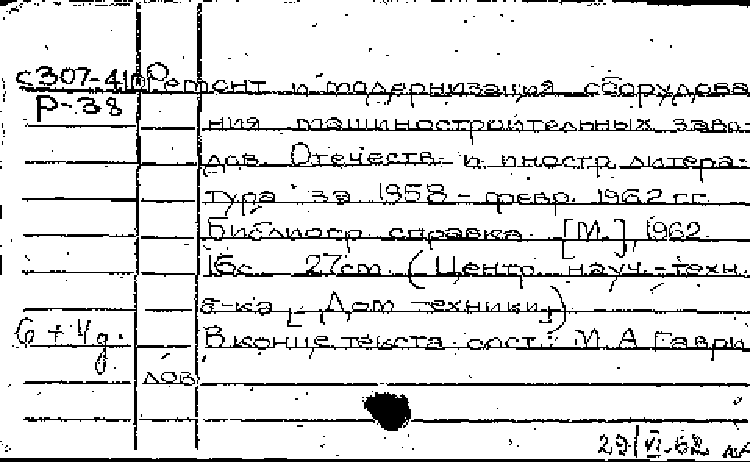 С307-410 Ремонт и модернизация оборудова
Р-38
ния машиностроительных заво-
дов. Отечеств. и иностр. литера-
тура за 1958 - февр. 1962 гг.
Библиогр. справка. [М.], 1962.
16с. 27см. (Центр. науч.-техн.
б-ка [- Дом техники])
6+Vд. В конце текста сост.: М.А. Гаври
лов
29/VI-62